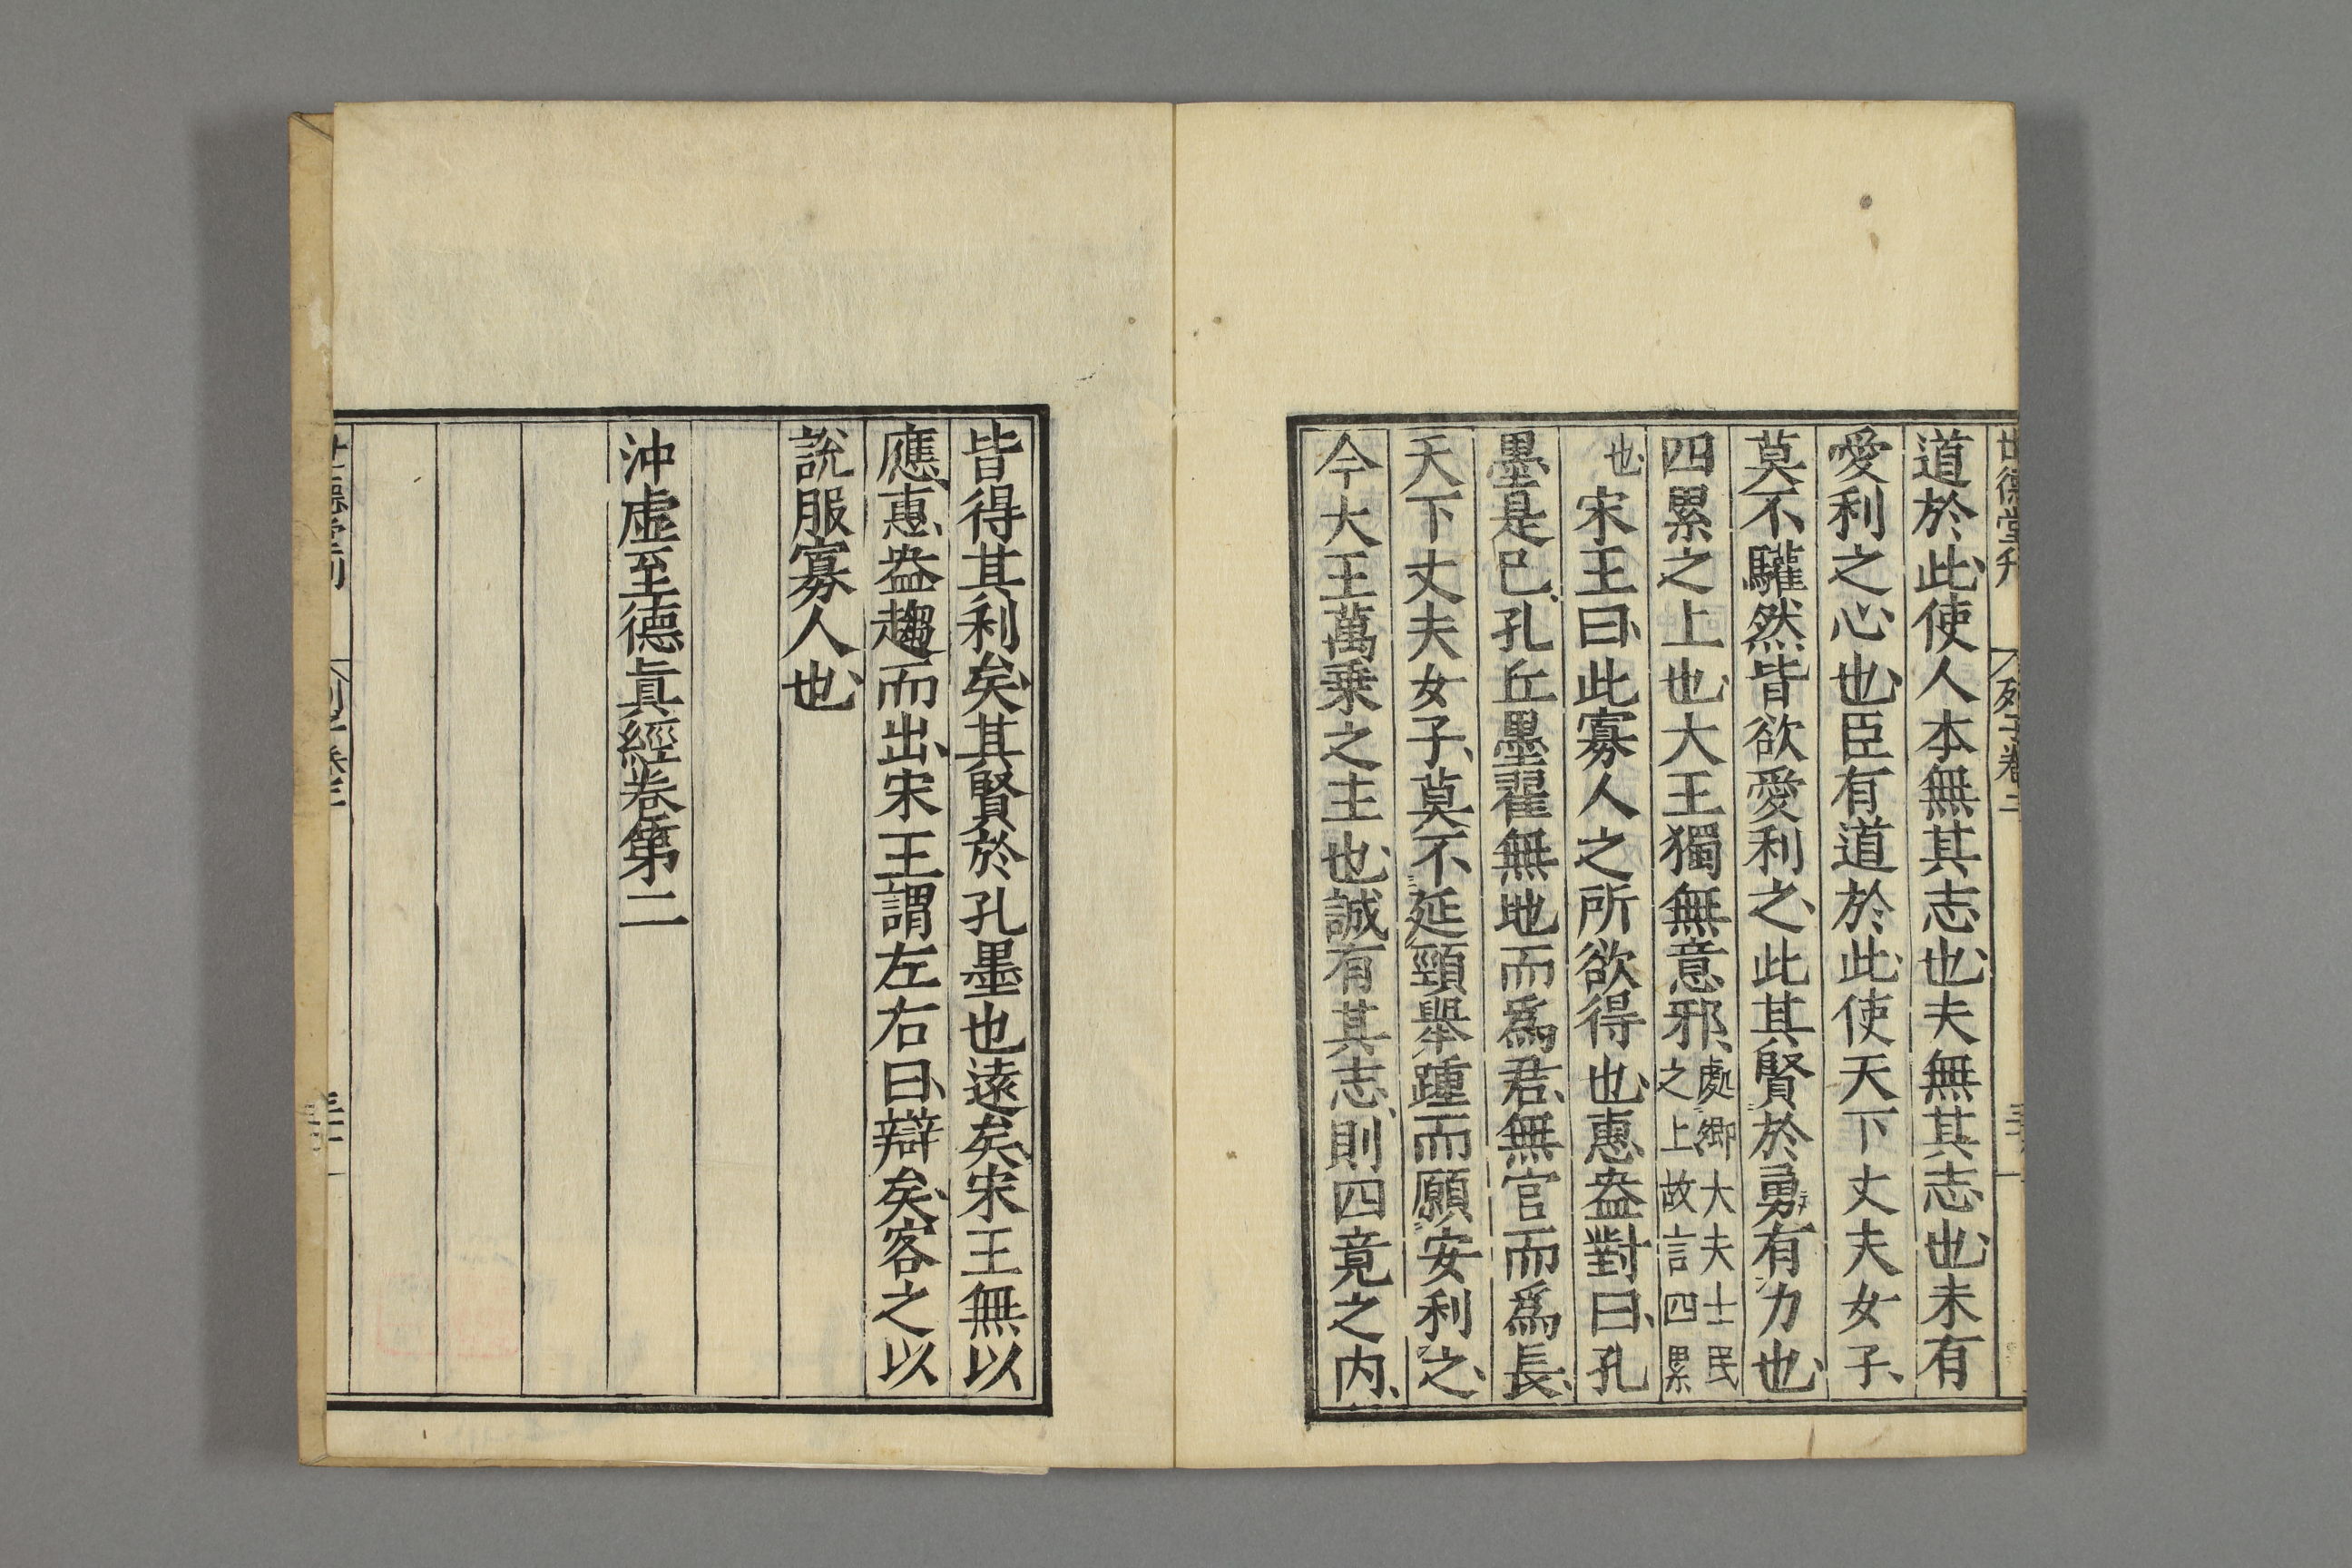 世德堂刊 列子卷二
道於此使人本無其志也夫無其志也未有
愛利之心也臣有道於此使天下丈夫女子
莫不驩然皆欲愛利之此其賢於勇有力也
四累之上也大王獨無意邪處卿大夫士民之上故言四累
也宋王曰此寡人之所欲得也惠盎對曰孔
墨是已孔丘墨翟無地而爲君無官而爲長
天下丈夫女子莫不延頸舉踵而願安利之
今大王萬乗之主也誠有其志則四竟之内
皆得其利矣其賢於孔墨也遠矣宋王無以
應惠盎趨而出宋王謂左右曰辯矣客之以
說服寡人也
沖虛至德眞經卷第二